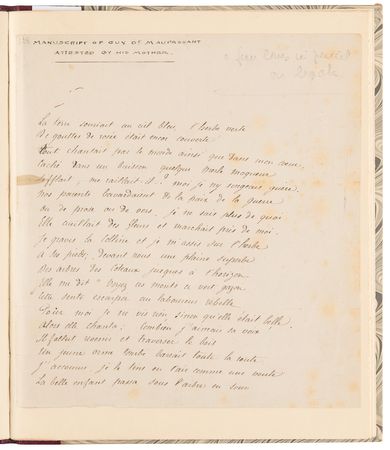 MANUSCRIPT OF GUY DE MAUPASSANT
ATTESTED BY HIS MOTHER.
La terre souriait au ciel bleu, l'herbe verte
De gouttes de rosée était encor couverte
Tout chantait par le monde ainsi que dans mon cœur,
Caché dans un buisson quelque merle moqueur
Sifflait, me raillait-il? moi je n'y songeais guère.
Nos parents la paix de la guerre
ou de prose ou de vers, je ne sais plus de quoi
Elle cueillait des fleurs et marchait près de moi.
Je gravis la colline et je m'assis sur l'herbe
À ses pieds; devant nous une plaine superbe
Des arbres des coteaux jusques à l'horizon.
Elle me dit "Voyez ces monts ce vert gazon
Cette route au laboureur
moi je ne vis rien sinon qu'elle était belle
Alors elle chanta; combien j'aimais sa voix
Il fallut revenir et traverser le bois
Un jeune orme tombé barrait toute la route
J'accourus je le tins en l'air comme une voûte
La belle enfant passa sous l'arbre en